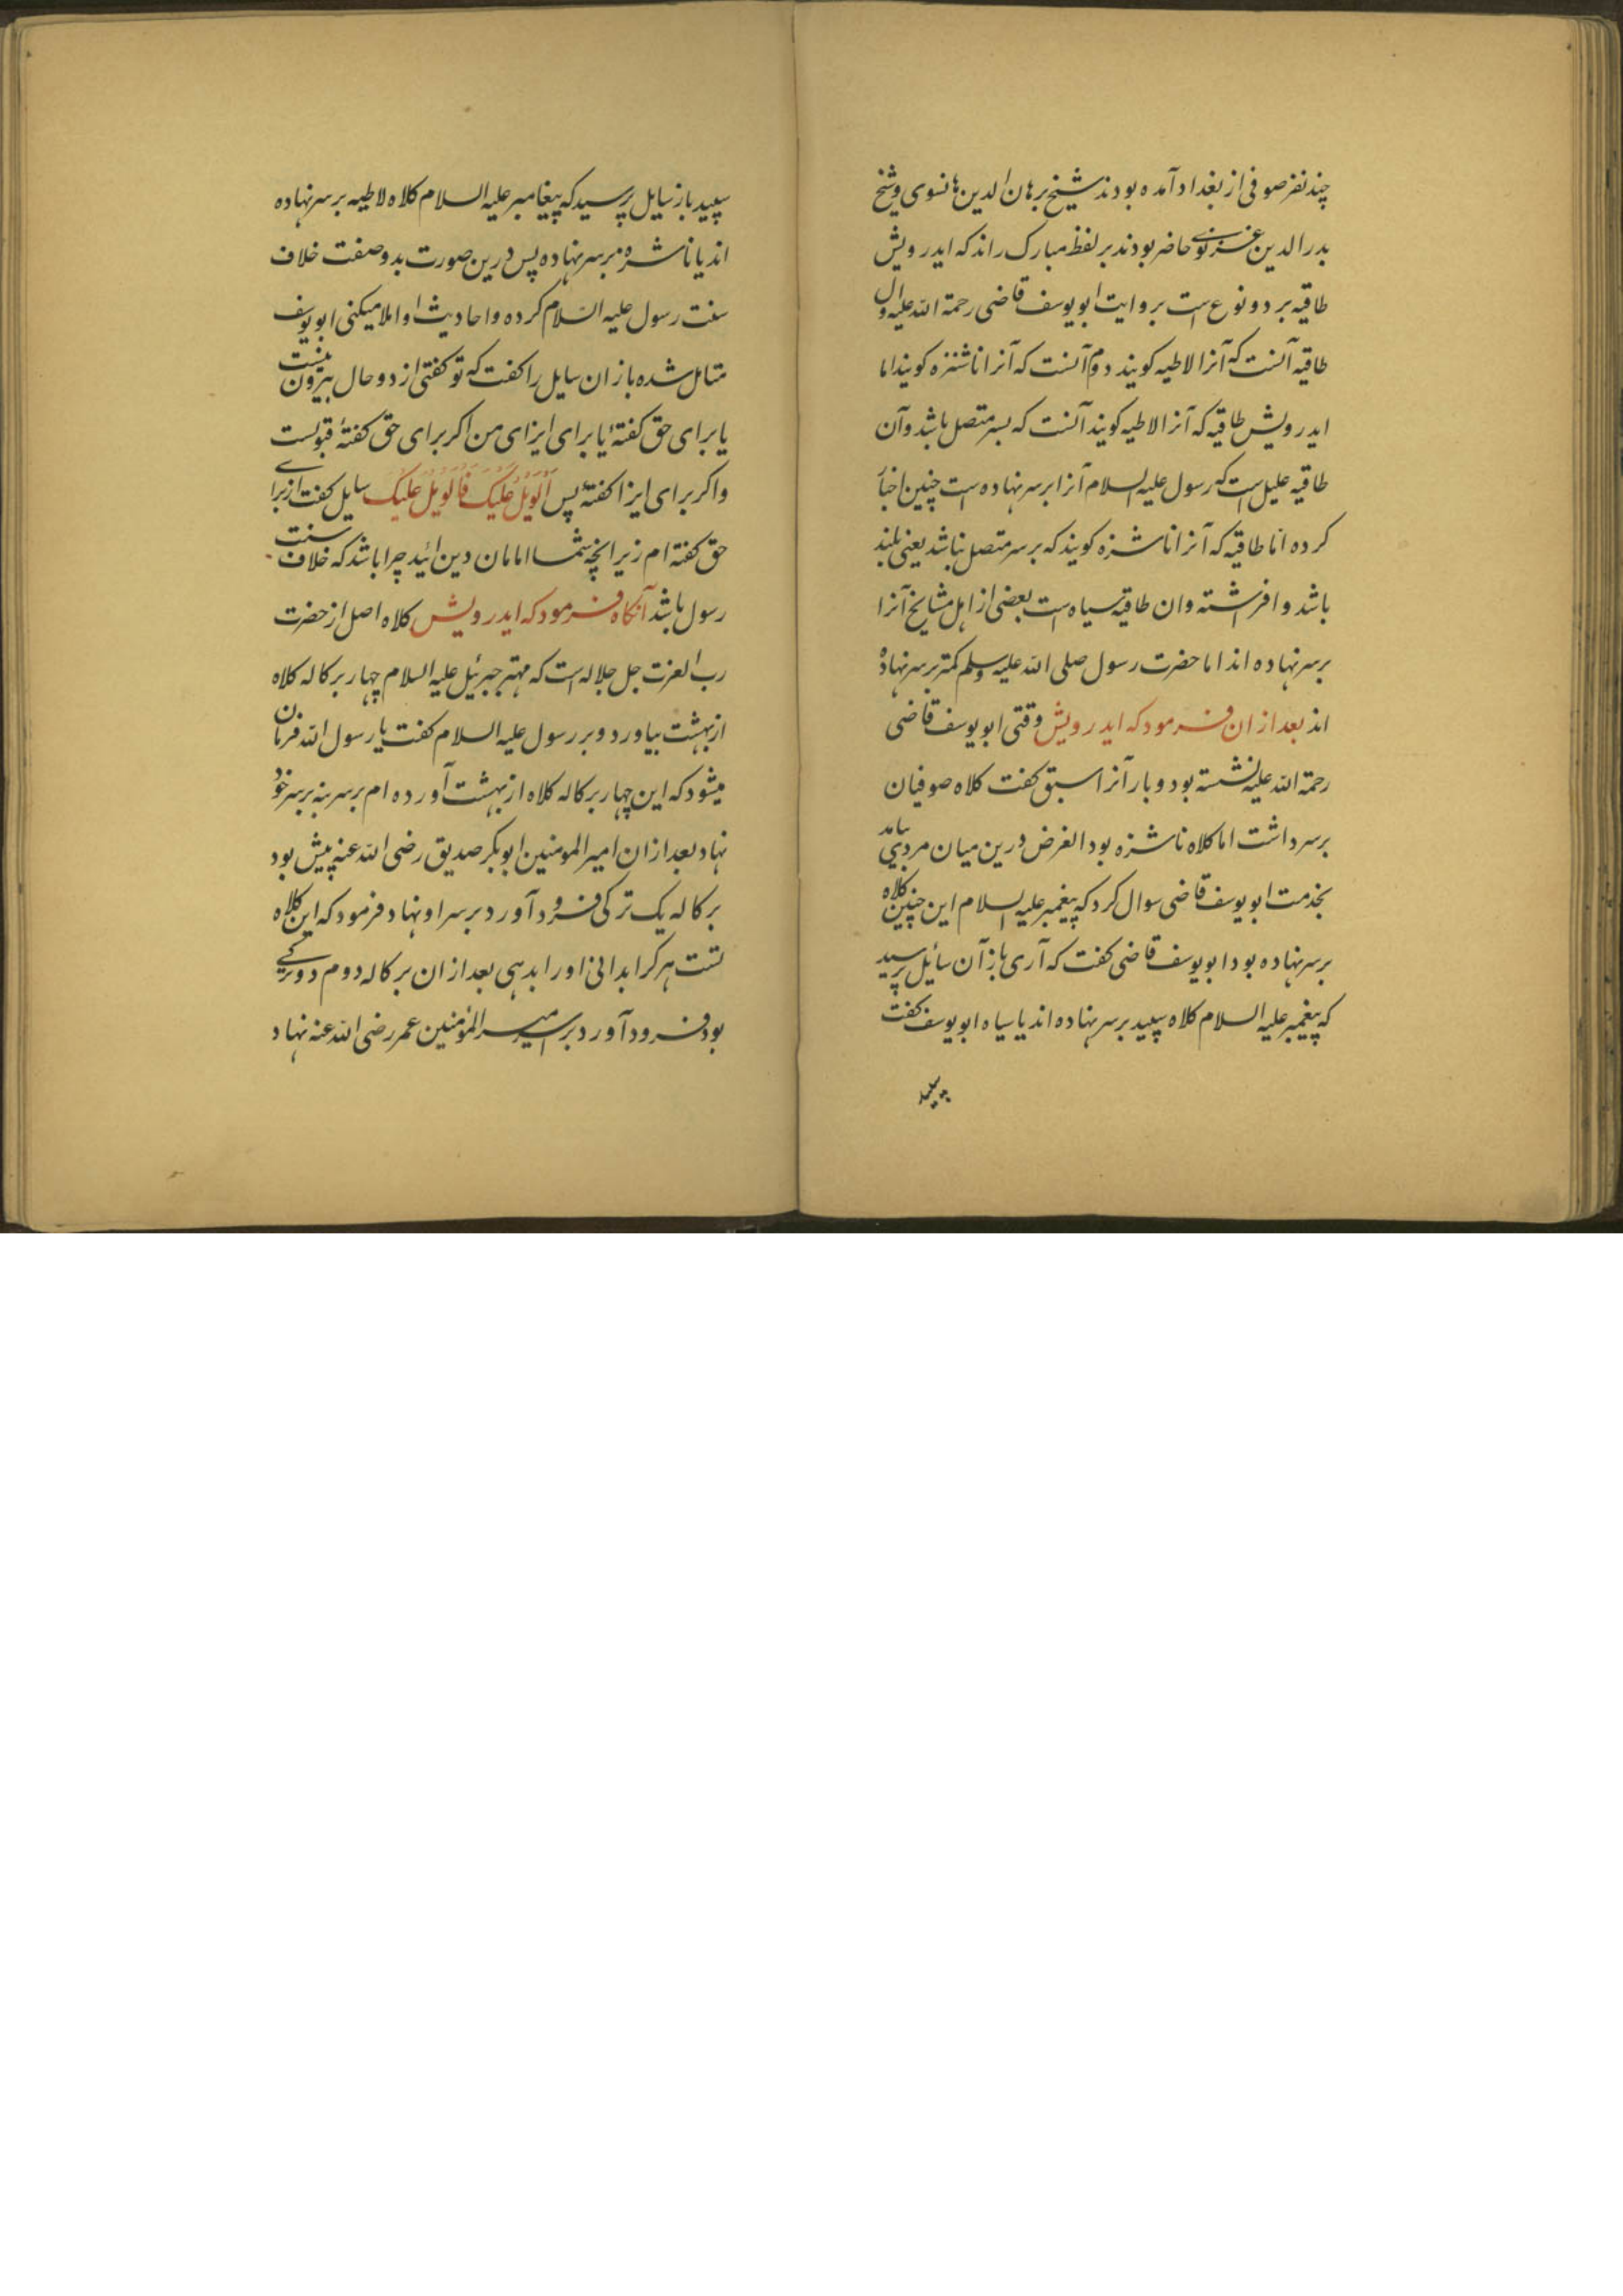 چند نفر صوفی از بغداد آمده بودند شیخ برهان الدین هانسوی و شیخ
بدرالدین غزنوی حاضر بودند بر لفظ مبارک راند که ایدرویش
طاقیه بر دو نوع است بروایت ابو یوسف قاضی رحمة الله علیه اول
طاقیه آنست که آنرا لاطیه کویند دوم آنست که آنرا ناشنزه کویند اما
ایدرویش طاقیه که آنرا لاطیه کویند آنست که بسر متصل باشد و آن
طاقیه علیل است که رسول علیه السلام آنرا بر سر نهاده است چنین اخبار
کرده اما طاقیه که آنرا ناشزه کویند که بر سر متصل نباشد یعنی بلند
باشد و افراشته و ان طاقیه سیاه است بعضی از اهل مشایخ آنرا
بر سر نهاده اند اما حضرت رسول صلی الله علیه وسلم کمتر بر سر نهاده
اند بعد از ان فرمود که ایدرویش وقتی ابو یوسف قاضی
رحمة الله علیه نشسته بود و بارآنرا سبق کفت کلاه صوفیان
بر سر داشت اما کلاه ناشزه بود الغرض درین میان مردی بیامد
بخدمت ابو یوسف قاضی سوال کرد که پیغمبر علیه السلام این چنین کلاه
بر سر نهاده بود ابو یوسف قاضی کفت که آری باز آن سائل پرسید
که پیغمبر علیه السلام کلاه سپید بر سر نهاده اند یا سیاه ابو یوسف کفت
سپید
سپید باز سایل پرسید که پیغامبر علیه السلام کلاه لاطیه بر سر نهاده
اند یا ناشزه بر سر نهاده پس درین صورت بدو صفت خلاف
سنت رسول علیه السّلام کرده و احادیث او املا میکنی ابو یوسف
متامل شده باز ان سایل را کفت که تو کفتی از دو حال بیرون نیست
یا برای حق کفتهٔ یا برای ایزای من اکر برای حق کفتهٔ قبولست
و اکر برای ایزا کفتهٔ پس اَلْوَیْلُ عَلَیْکَ فَالْوَیْلُ عَلَیْکَ سایل کفت از برای
حق کفته ام زیرا نچه شما امامان دین ائید چرا باشد که خلاف سنت
رسول باشد آنکاه فرمود که ایدرویش کلاه اصل از حضرت
رب العزت جل جلاله است که مهتر جبرئیل علیه السلام چهار پرکاله کلاه
از بهشت بیاورد و بر رسول علیه السلام کفت یا رسول الله فرمان
میشود که این چهار پرکاله کلاه از بهشت آورده ام بر سر بنه بر سر خود
نهاد بعد از ان امیر المومنین ابوبکر صدیق رضی الله عنه پیش بود
پرکاله یک ترکی فرود آورد بر سر او نهاد فرمود که این کلاه
تست هر کرا بدانی او را بدهی بعد از ان پرکاله دوم دو ترکی
بود فرود آورد بر سر امیر المؤمنین عمر رضی الله عنه نهاد